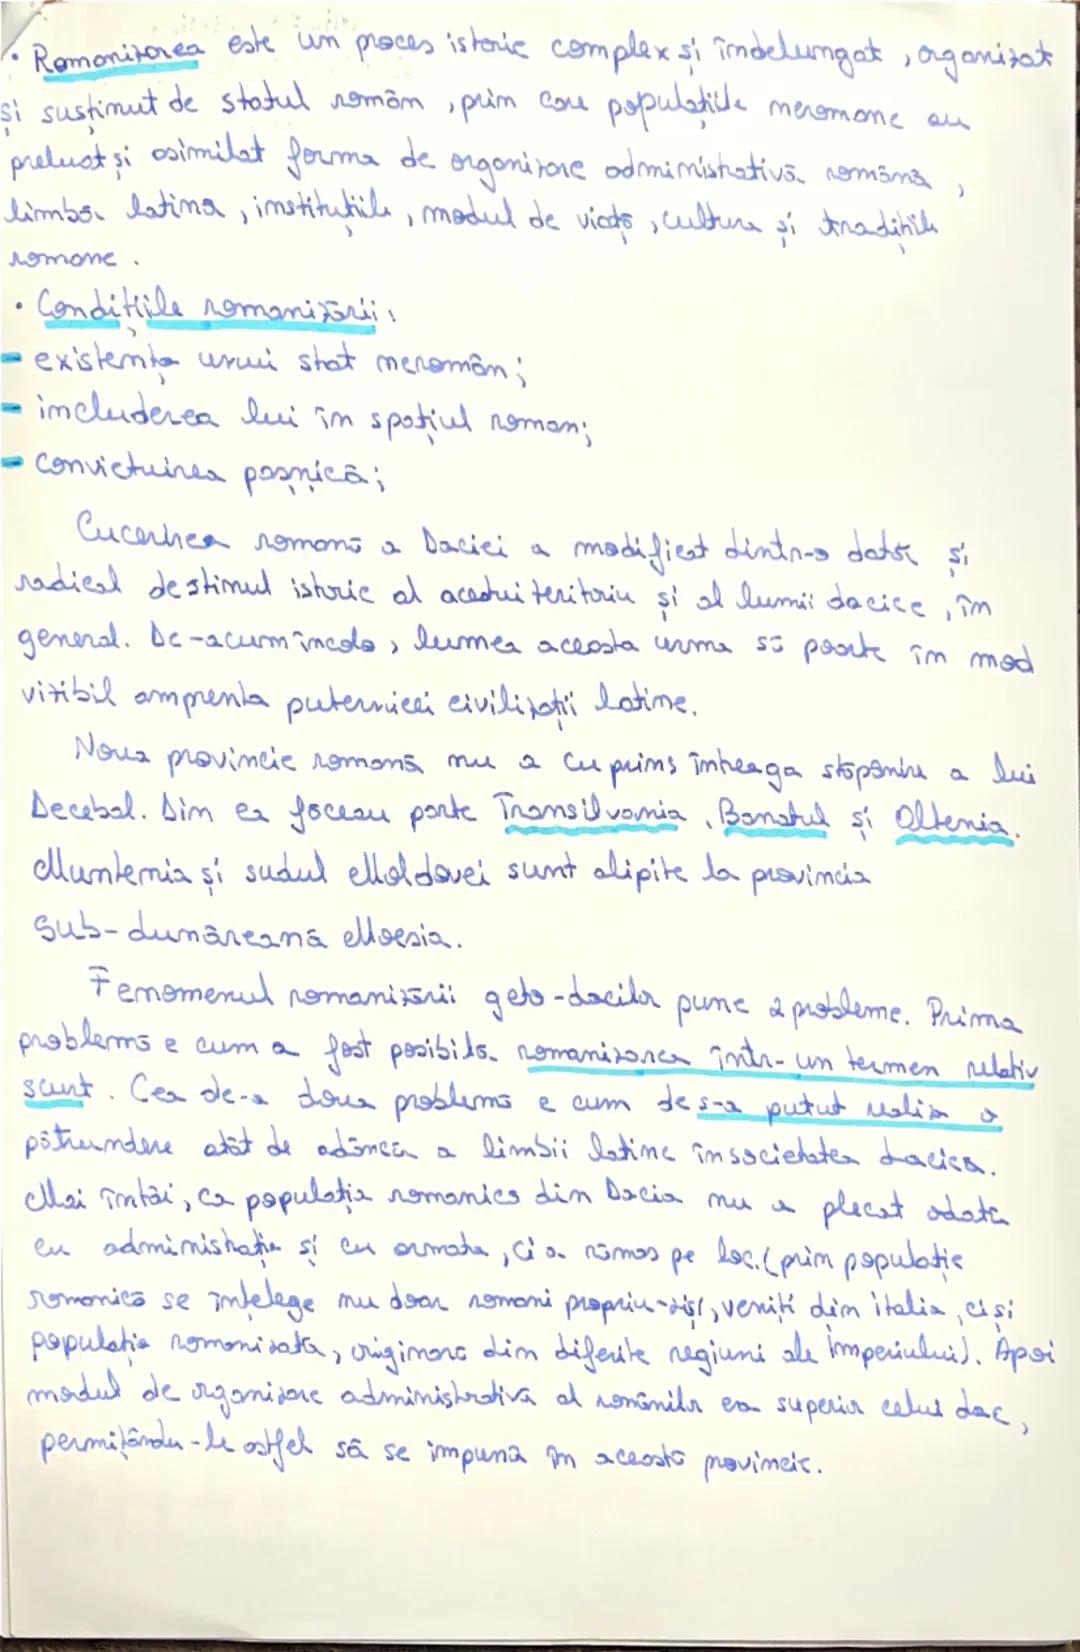 • Romanizarea este un proces istoric complex și îndelungat, organizat
și susținut de statul român, prin care populațiile neromane au
preluat și asimilat forma de organizare administrativă română,
limba latina, instituțiile, modul de viață, cultura și tradițiile
romane.
• Condițiile romanizării:
- existența unui stat neromân;
- includerea lui în spațiul roman;
- conviețuirea pașnică;
Cucerirea romană a Daciei a modificat dintr-o dată și
radical destinul istoric al acestui teritoriu și al lumii dacice, în
general. De-acum încolo, lumea aceasta urma să poarte în mod
vizibil amprenta puternicei civilizații latine.
Noua provincie romană nu a cuprins întreaga stăpânire a lui
Decebal. Din ea făceau parte Transilvania, Banatul și Oltenia.
Muntenia și sudul Moldovei sunt alipite la provincia
sub-dunăreană Moesia.
Fenomenul romanizării geto-dacilor pune 2 probleme. Prima
problemă e cum a fost posibilă romanizarea într-un termen relativ
scurt. Cea de-a doua problemă e cum de s-a putut realiza o
pătrundere atât de adâncă a limbii latine în societatea dacica.
Mai întâi, ca populația romanică din Dacia nu a plecat odată
cu administrația și cu armata, ci a rămas pe loc. (prin populație
romanică se înțelege nu doar romani propriu-ziși, veniți din italia, ci și
populația romanizată, originară din diferite regiuni ale Imperiului). Apoi
modul de organizare administrativă al românilor era superior celui dac,
permițându-le astfel să se impună în această provincie.